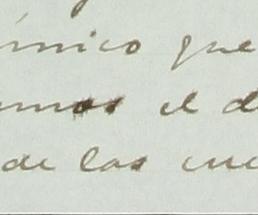 único que
amos el d
de las cue